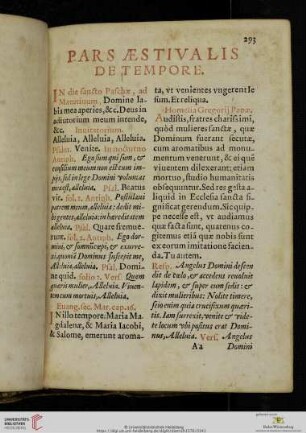 293
PARS ÆSTIVALIS
DE TEMPORE.
IN die sancto Paschæ, ad
Matutinum. Domine la-
bia mea aperies, &c. Deus in
adiutorium meum intende,
&c. Inuitatorium.
Alleluia, Alleluia, Alleluia.
Psalm. Venite. In nocturno
Antiph. Ego sum qui sum, &
consilium meum non est cum im-
pijs, sed in lege Domini voluntas
mea est, alleluia. Psal. Beatus
vir. Antiph. Postulaui
patrem meum, alleluia: dedit mi-
hi gentes, alleluia: in hæreditatem
alleluia. Psal. Quare fremue-
runt. Antiph. Ego dor-
miui, & somnū cœpi, & exurre-
xi, quoniā Dominus suscepit me,
Alleluia, alleluia. Psal. Domi-
ne quid. Vers. Quem
quæris mulier, Alleluia. Viuen-
tem cum mortuis, Alleluia.
Euang. sec. Mar. cap. 16.
IN illo tempore, Maria Ma-
gdalenæ, & Maria Iacobi,
& Salome, emerunt aroma-
ta, vt venientes vngerent Ie
sum. Et reliqua.
Homelia Gregorij Papæ.
Audistis, fratres charissimi,
quòd mulieres sanctæ, quæ
Dominum fuerant secutæ,
cum aromatibus ad monu-
mentum venerunt, & ei quē
viuentem dilexerant, etiam
mortuo, studio humanitatis
obsequuntur. Sed res gesta a-
liquid in Ecclesia sancta si-
gnificat gerendum. Sic quip-
pe necesse est, vt audiamus
quæ facta sunt, quatenus co-
gitemus etiā quæ nobis sint
ex eorum imitatione facien-
da. Tu autem.
Resp. Angelus Domini descen
dit de cælo & accedens reuoluit
lapidem, & super eum sedit: &
dixit mulieribus: Nolite timere,
scio enim quia crucifixum quæri-
tis. Iam surrexit, venite & vide-
te locum vbi positus erat Domi-
nus, Alleluia. Vers. Angelus
Aa Domini